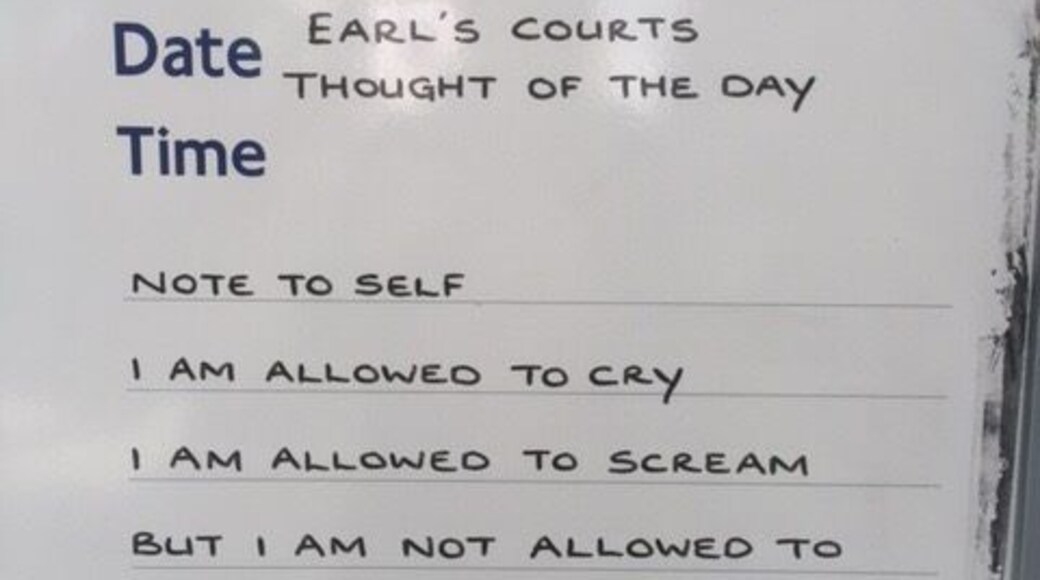 Date EARL'S COURTS
THOUGHT OF THE DAY
Time
NOTE TO SELF
I AM ALLOWED TO CRY
I AM ALLOWED TO SCREAM
BUT I AM NOT ALLOWED TO